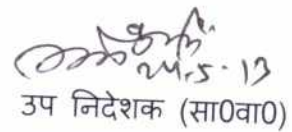 24.5.13
उप निदेशक (सा0वा0)